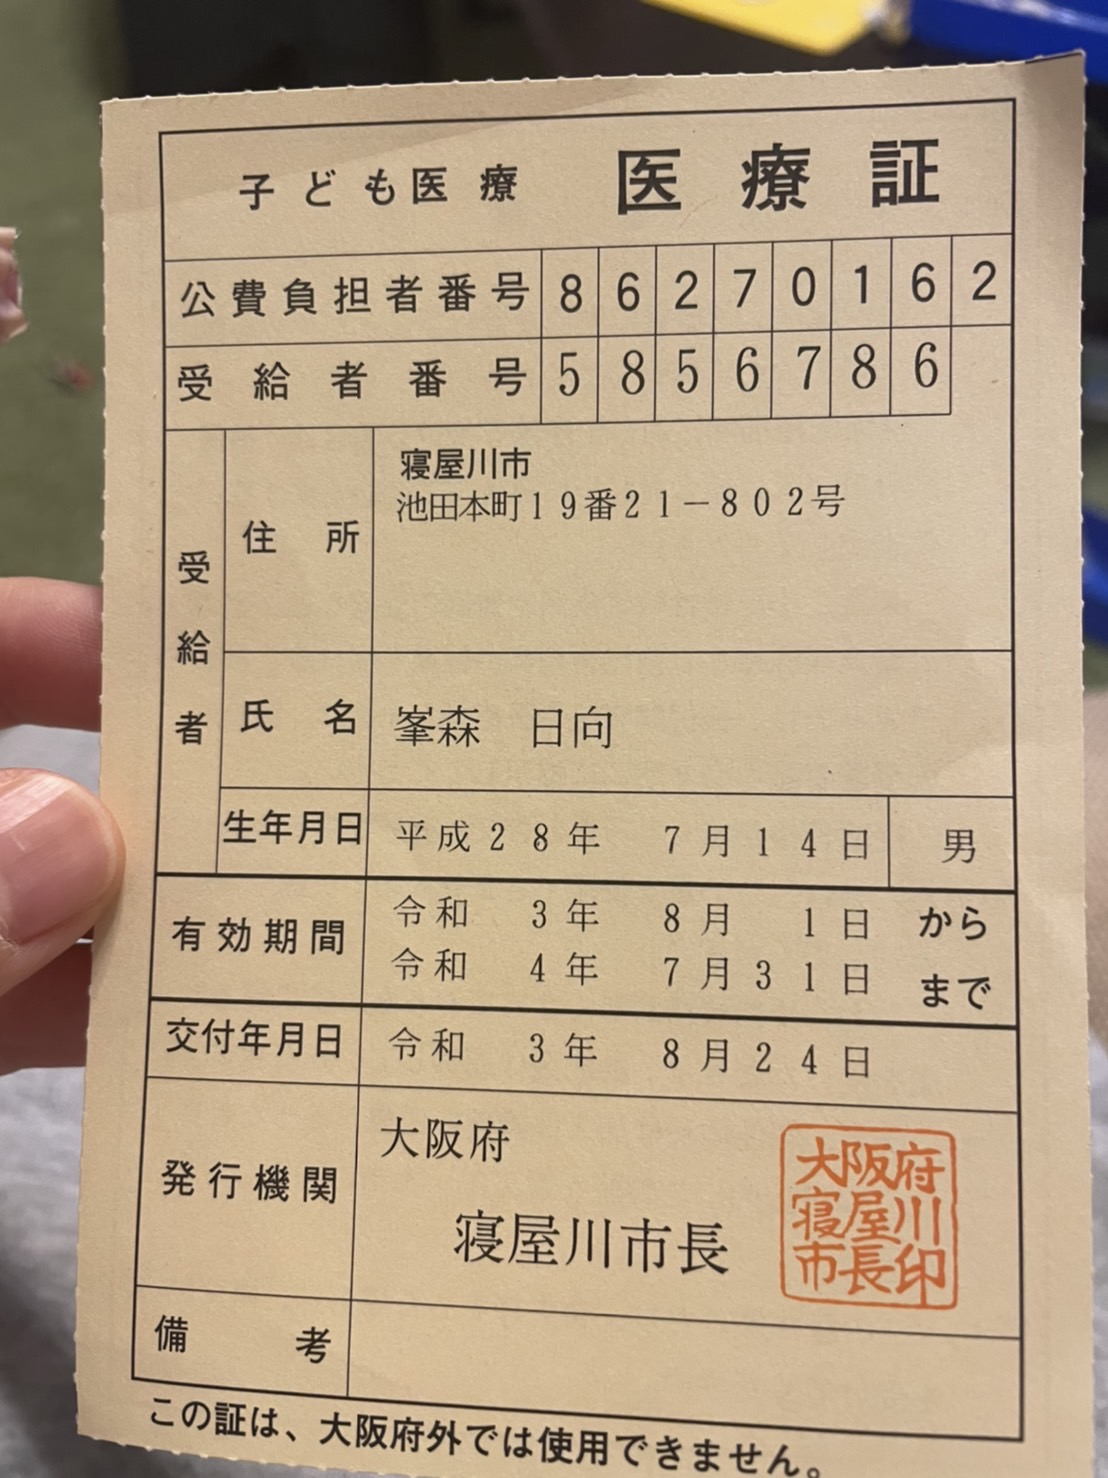 子ども医療 医療証
公費負担者番号 86270162
受給者番号 5856786
受給者
住所 寝屋川市
池田本町19番21-802号
氏名 峯森 日向
生年月日 平成28年 7月14日 男
有効期間 令和 3年 8月 1日 から
令和 4年 7月31日 まで
交付年月日 令和 3年 8月24日
発行機関 大阪府
寝屋川市長
大阪府
寝屋川
市長印
備考
この証は、大阪府外では使用できません。